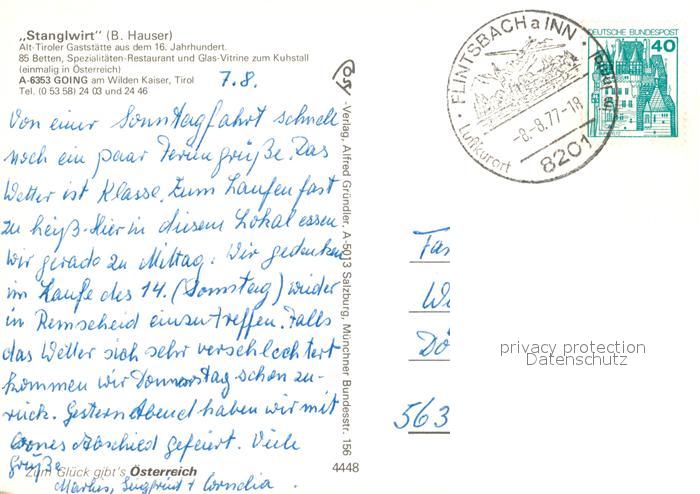 „Stanglwirt" (B. Hauser)
Alt-Tiroler Gaststätte aus dem 16. Jahrhundert.
85 Betten, Spezialitäten-Restaurant und Glas-Vitrine zum Kuhstall
(einmalig in Österreich)
A-6353 GOING am Wilden Kaiser, Tirol
Tel. (0 53 58) 24 03 und 24 46
7.8.
Von einer Sonntagfahrt schnell
noch ein paar Feriengrüße. Das
Wetter ist Klasse. Zum Laufen fast
zu heiß. Hier in diesem Lokal essen
wir gerade zu Mittag. Wir gedenken
im Laufe des 14. (Sonntag) wieder
in Remscheid einzutreffen. Falls
das Wetter sich sehr verschlechtert
kommen wir Donnerstag schon zu-
rück. Gestern Abend haben wir mit
Abschied gefeiert. Viele
Grüße
Markus, Siegfried + Cornelia.
Zum Glück gibt's Österreich
4448
-Verlag, Alfred Gründler, A-5013 Salzburg, Münchner Bundesstr. 156
FLINTSBACH a INN
-8.-8.77-18
Luftkurort
8201
DEUTSCHE BUNDESPOST
40
Fa
Wi
Dö
563
privacy protection
Datenschutz